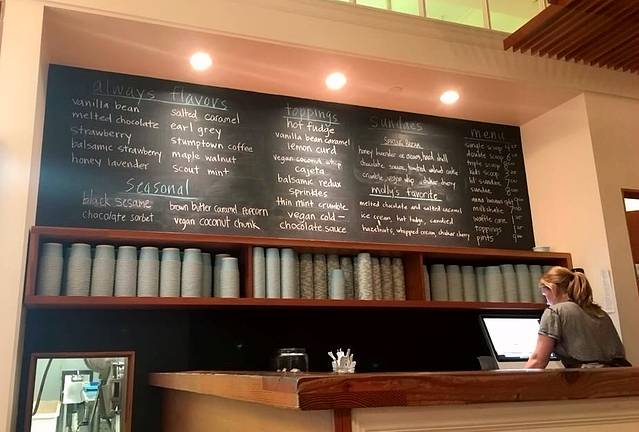 always flavors
vanilla bean
melted chocolate
strawberry
balsamic strawberry
honey lavender
salted caramel
earl grey
stumptown coffee
maple walnut
scout mint
Seasonal
black sesame
chocolate sorbet
brown butter caramel popcorn
vegan coconut chunk
toppings
hot fudge
vanilla bean caramel
lemon curd
vegan coconut whip
cajeta
balsamic redux
sprinkles
thin mint crumble
vegan cold-
chocolate sauce
Sundaes
honey lavender ice cream,
chocolate sauce, cookie
crumble, vegan whip, shaker cherry
molly's favorite
melted chocolate and salted caramel
ice cream, hot fudge, candied
hazelnuts, whipped cream, shaker cherry
menu
single scoop
double scoop
triple scoop
kids scoop
kid sundae
sundae
milkshake
waffle cone
toppings
pints